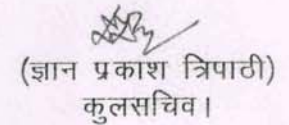 (ज्ञान प्रकाश त्रिपाठी)
कुलसचिव।